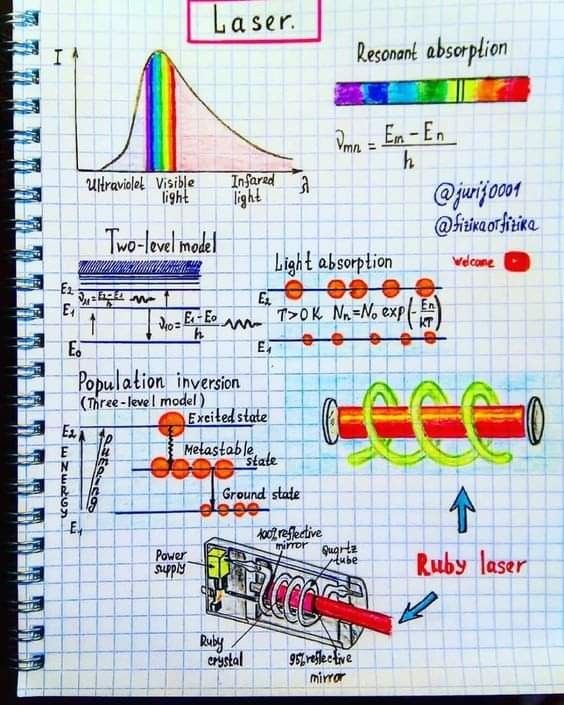 Laser.
I
Ultraviolet
Visible light
Infared light
λ
Resonant absorption
νmn = Em - En / h
@jurij0001
@fizikaotfizika
Welcome
Two-level model
E2
ν21 = E2-E1 / h
E1
ν10 = E1 - E0 / h
E0
Light absorption
E2
T>0 K Nn=N0 exp(-En/kT)
E1
Population inversion
(Three-level model)
E2
ENERGY
pumping
E1
Excited state
Metastable state
Ground state
Power supply
100% reflective mirror
Quartz tube
Ruby crystal
95% reflective mirror
Ruby laser